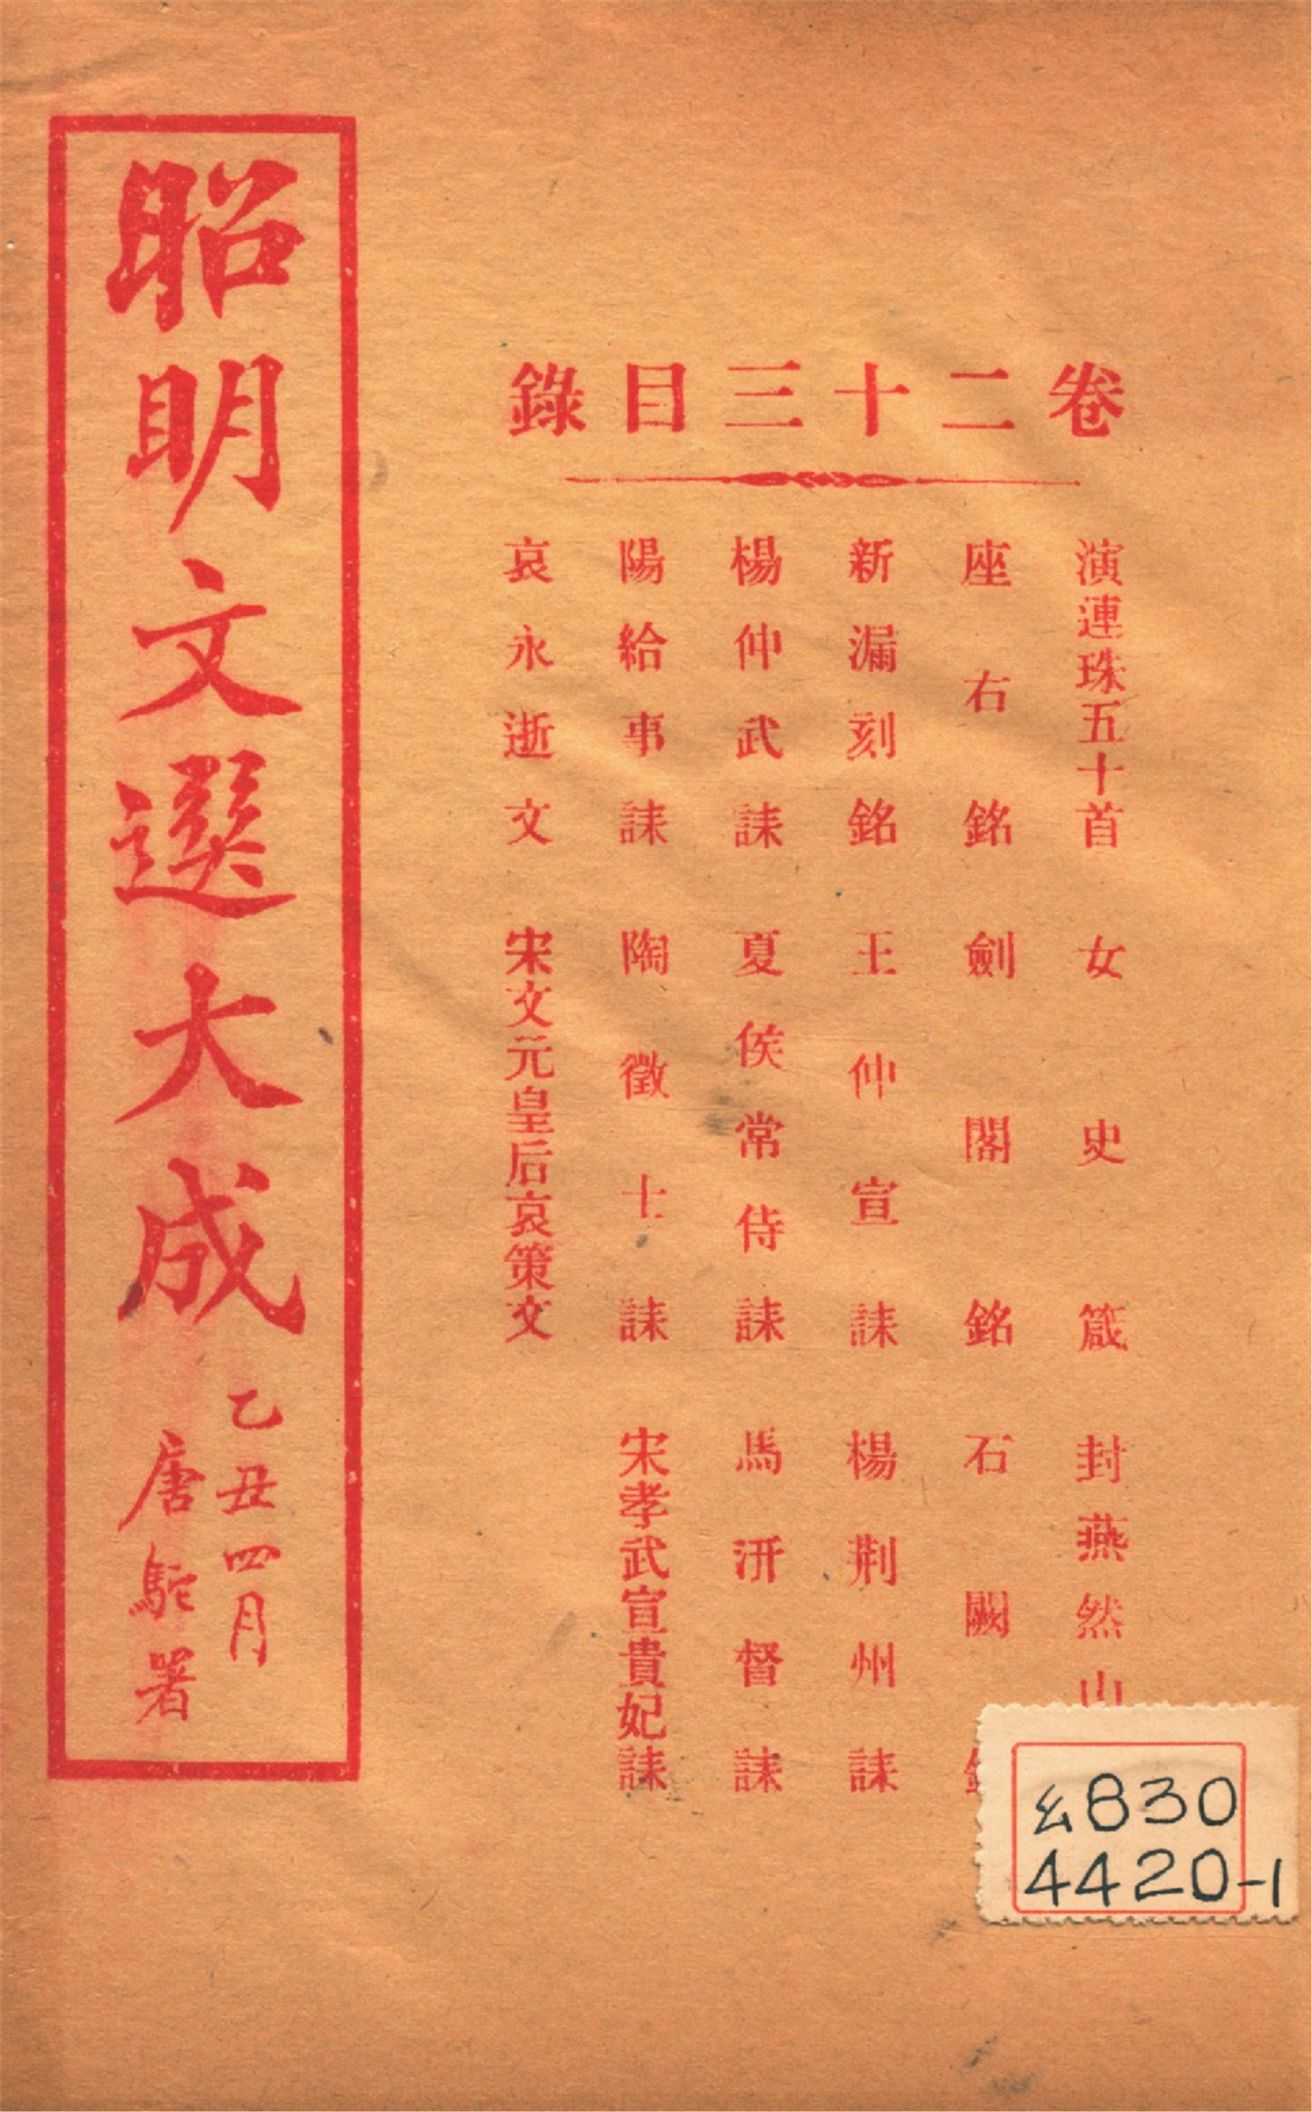 卷二十三目錄
演連珠五十首 女史箴 封燕然山
座右銘 劍閣銘 石闕
新漏刻銘 王仲宣誄 楊荆州誄
楊仲武誄 夏侯常侍誄 馬汧督誄
陽給事誄 陶徵士誄 宋孝武宣貴妃誄
哀永逝文 宋文元皇后哀策文
昭明文選大成
乙丑四月
唐駝署
830
4420-1